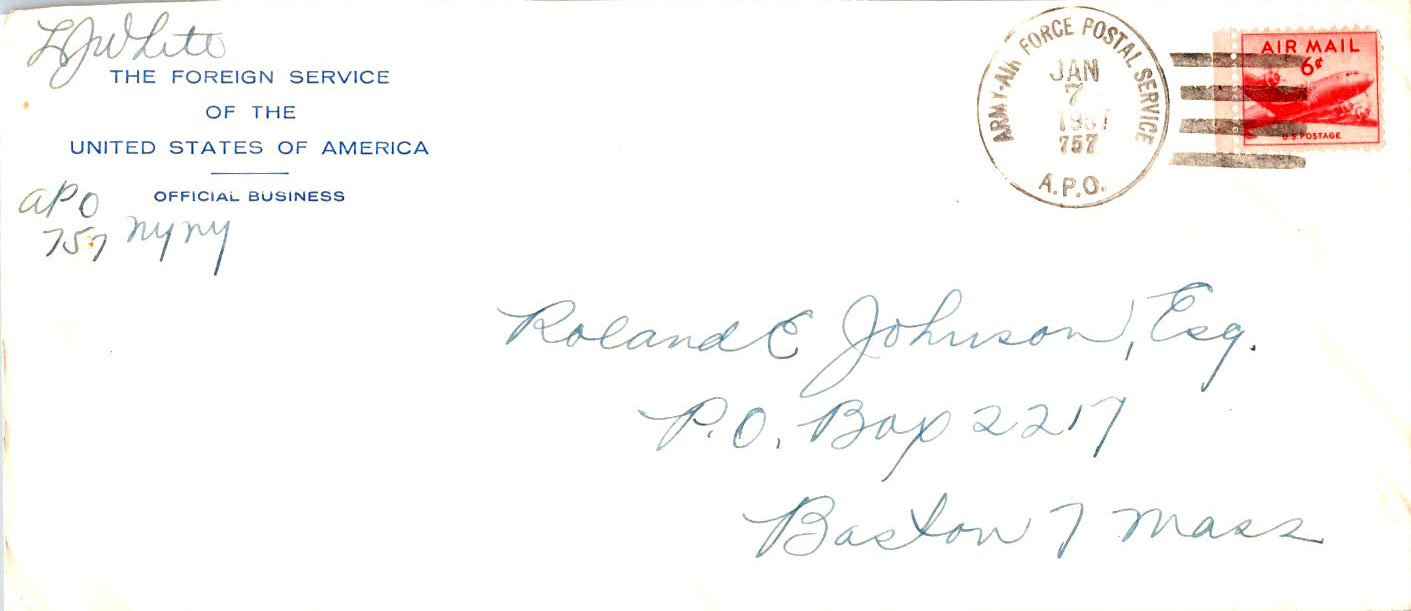 LJ White
THE FOREIGN SERVICE
OF THE
UNITED STATES OF AMERICA
OFFICIAL BUSINESS
APO
757 NY NY
ARMY-AIR FORCE POSTAL SERVICE
JAN
7
757
A.P.O.
AIR MAIL
6¢
U.S. POSTAGE
Roland E Johnson, Esq.
P.O. Box 2217
Boston 7 Mass